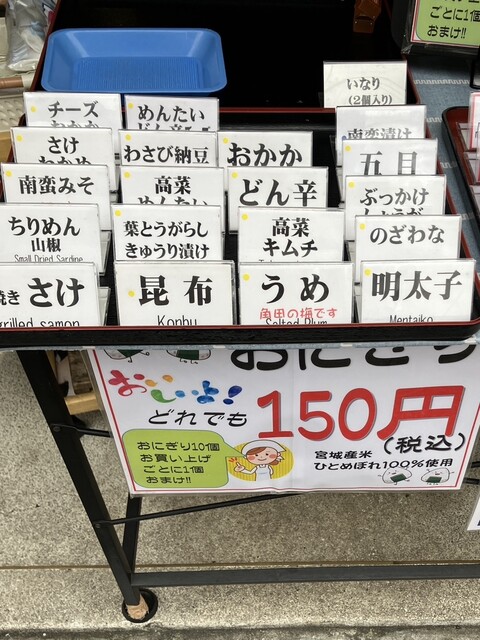 ごとに1個
おまけ!!
いなり
(2個入り)
チーズ
おかか
めんたい
どん辛
南蛮漬け
さけ
わかめ
わさび納豆
おかか
五目
南蛮みそ
高菜
めんたい
どん辛
ぶっかけ
しょうが
ちりめん
山椒
Small Dried Sardine
葉とうがらし
きゅうり漬け
高菜
キムチ
のざわな
焼き さけ
grilled samon
昆布
Konbu
うめ
角田の梅です
Salted Plum
明太子
Mentaiko
おにぎり
おいしいよ!
どれでも
150円
(税込)
おにぎり10個
お買い上げ
ごとに1個
おまけ!!
宮城産米
ひとめぼれ100%使用